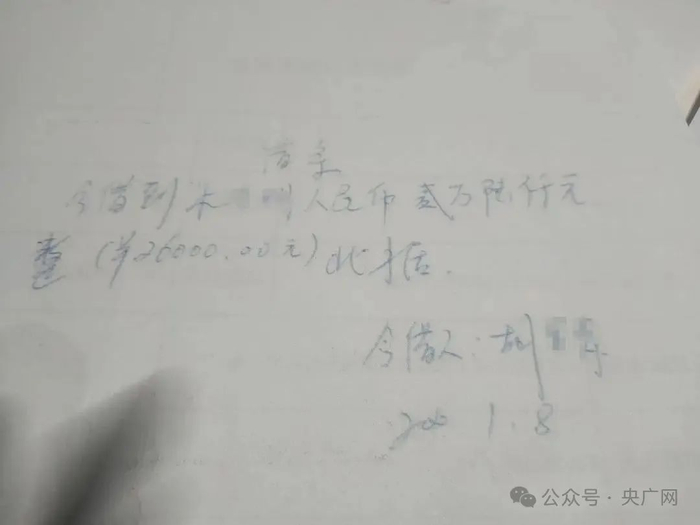 借条
今借到 木 人民币 贰万陆仟元
整(¥26000.00元)此据.
今借人:胡
1.8
公众号·央广网